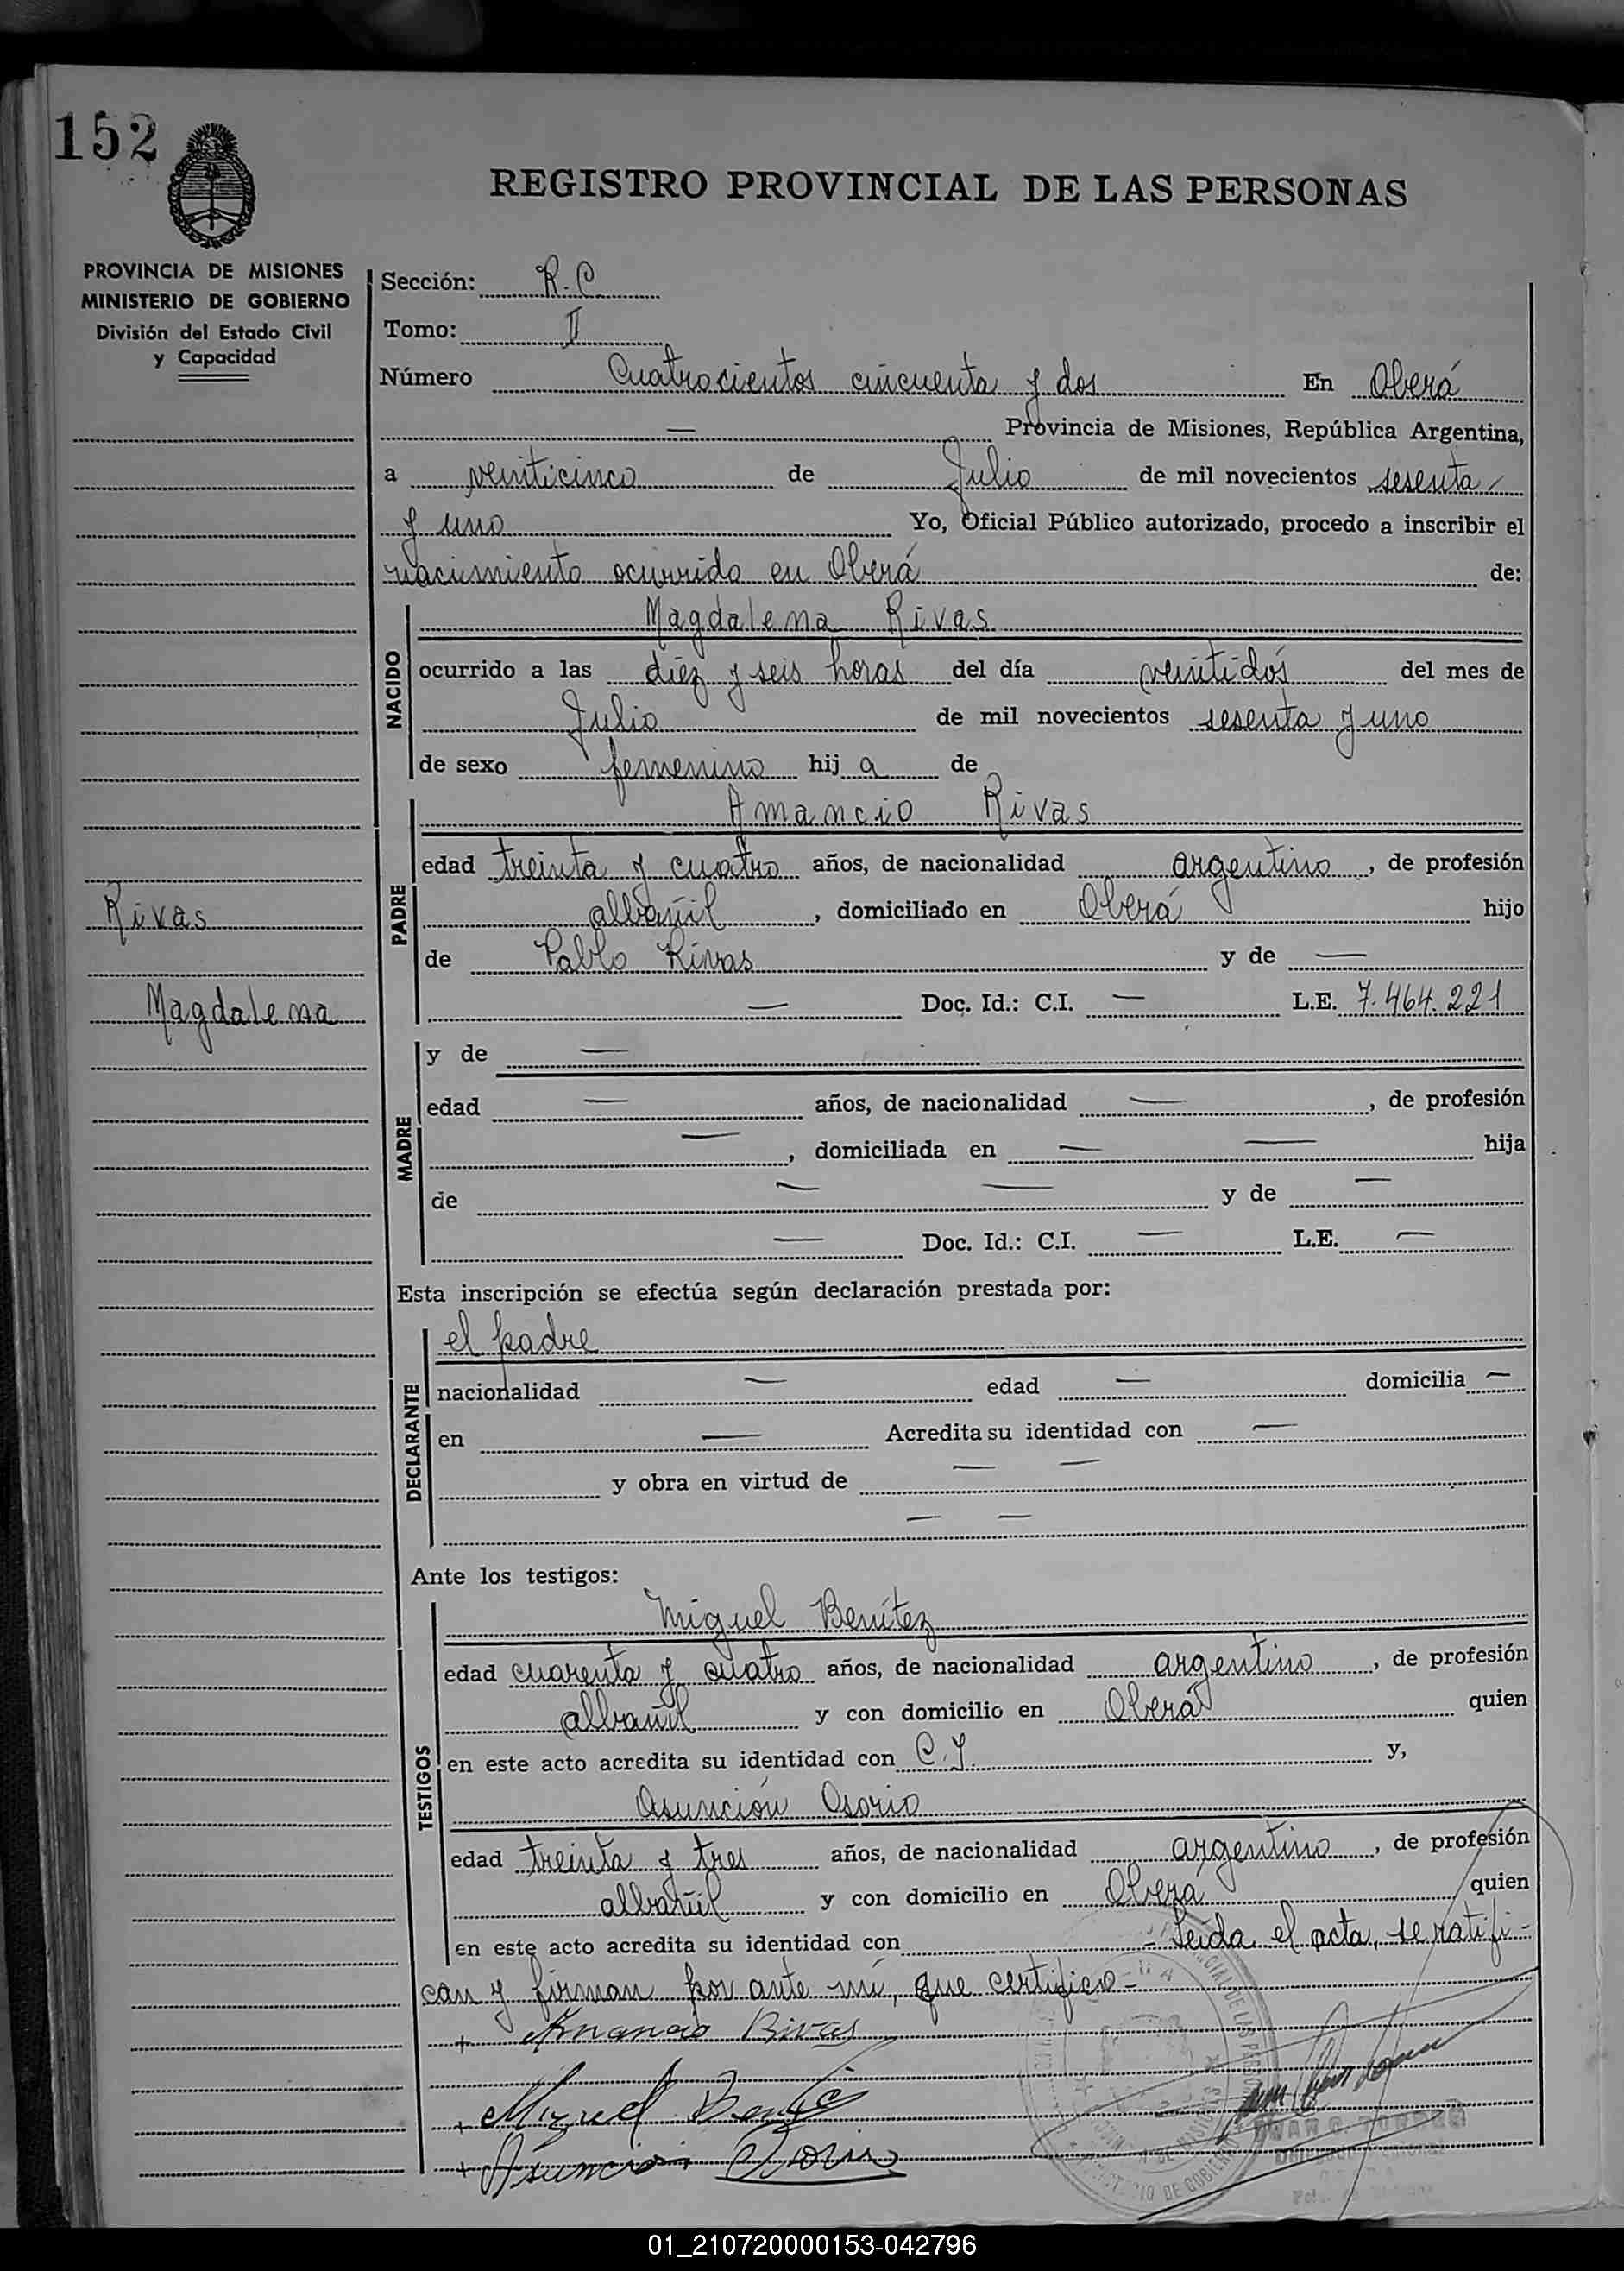 152
REGISTRO PROVINCIAL DE LAS PERSONAS
PROVINCIA DE MISIONES
MINISTERIO DE GOBIERNO
División del Estado Civil
y Capacidad
Sección: R.C
Tomo: II
Número Cuatrocientos cincuenta y dos En Oberá
— Provincia de Misiones, República Argentina,
a veinticinco de Julio de mil novecientos sesenta
y uno Yo, Oficial Público autorizado, procedo a inscribir el
nacimiento ocurrido en Oberá de:
NACIDO
Magdalena Rivas
ocurrido a las diez y seis horas del día veintidós del mes de
Julio de mil novecientos sesenta y uno
de sexo femenino hij a de
PADRE
Amancio Rivas
edad treinta y cuatro años, de nacionalidad argentino, de profesión
albañil, domiciliado en Oberá hijo
de Pablo Rivas y de —
— Doc. Id.: C.I. — L.E. 7.464.221
Rivas
Magdalena
MADRE
y de —
edad — años, de nacionalidad —, de profesión
—, domiciliada en — — hija
de — — y de —
— Doc. Id.: C.I. — L.E. —
Esta inscripción se efectúa según declaración prestada por:
DECLARANTE
el padre
nacionalidad — edad — domicilia —
en — Acredita su identidad con —
y obra en virtud de — —
— —
Ante los testigos:
TESTIGOS
Miguel Benítez
edad cuarenta y cuatro años, de nacionalidad argentino, de profesión
albañil y con domicilio en Oberá quien
en este acto acredita su identidad con C.I. y,
Asunción Osorio
edad treinta y tres años, de nacionalidad argentino, de profesión
albañil y con domicilio en Oberá quien
en este acto acredita su identidad con - Leida el acta, se ratifi-
can y firman por ante mí, que certifico-
+ Amancio Rivas
+ Miguel Benitez
+ Asuncion Osorio
01_210720000153-042796